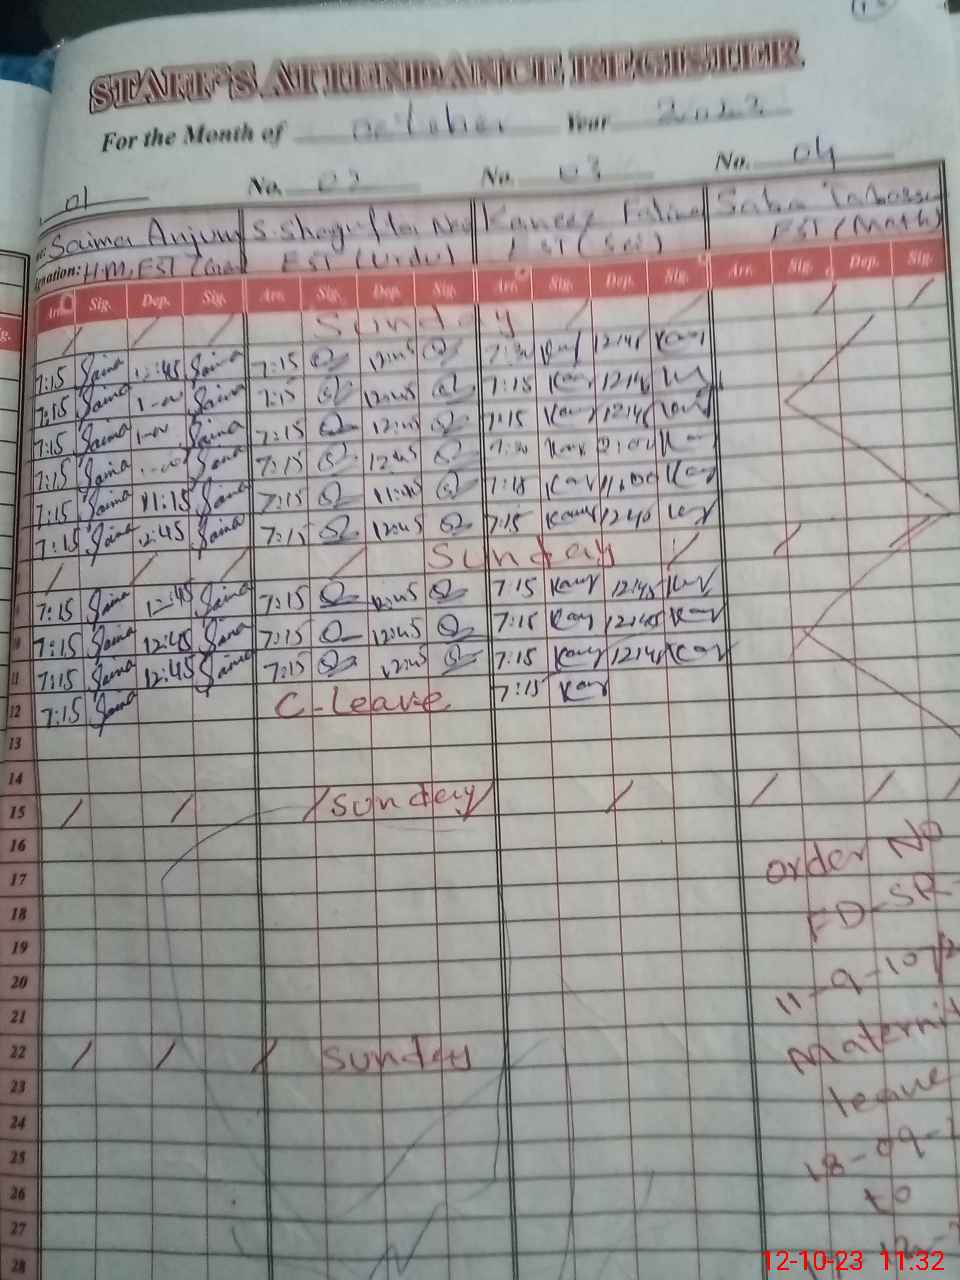 STAFF'S ATTENDANCE REGISTER
For the Month of october Year 2023
01 No. 02 No. 03 No. 04
Saima Anjum S. Shagufta Kaneez Fatima Saba Tabassu
gnation: H.M, EST EST (Urdu) EST (Sci) EST (Math)
Arr. Sig. Dep. Sig. Arr. Sig. Dep. Sig. Arr. Sig. Dep. Sig. Arr. Sig. Dep. Sig.
/ / / Sunday / / / /
7:15 Saima 12:45 Saima 7:15 12:45 7:30 Kay 12:45 Kay
7:15 Saima 1-00 Saima 7:15 12:45 7:15 Kay
7:15 Saima 1-00 Saima 7:15 12:45 7:15 Kay 12:45 Kay
7:15 Saima 1-00 Saima 7:15 12:45 7:30 Kay Kay
7:15 Saima 11:15 Saima 7:15 11:45 Kay Kay
7:15 Saima 12:45 Saima 7:15 12:45 7:15 Kay 12:40 Kay
/ / / / Sunday / / /
7:15 Saima 12:45 Saima 7:15 12:45 7:15 Kay 12:45 Kay
10 7:15 Saima 12:45 Saima 7:15 12:45 7:15 Kay 12:45 Kay
11 7:15 Saima 12:45 Saima 7:15 12:45 7:15 Kay 12:45 Kay
12 7:15 Saima C-leave 7:15 Kay
13
14
15 / / / Sunday / / / / /
16 order No
17 FD-SR-
18
19
20 11-9-107/2
21
22 / / / Sunday Materni
23 leave
24
25 18-09-
26 to
27
28
12-10-23 11:32